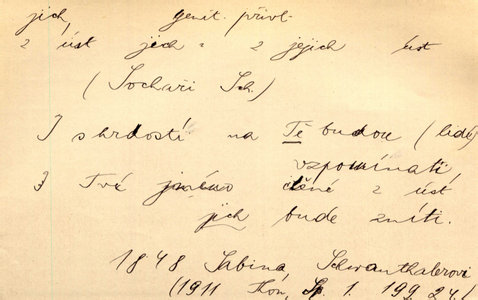 jich, genit. přivl.
z úst jich = z jejich úst
(Sochaři Sch.)
I s hrdostí na Tě budou (lidé)
vzpomínati,
I Tvé jméno ctěné z úst
jich bude zníti.
1848 Sabina, Schwanthalerovi
(1911 Thon, Sp. 1. 199, 24.)